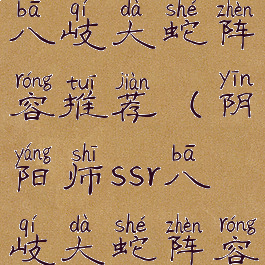 bā qí dà shé zhèn
八岐大蛇阵
róng tuī jiàn yīn
容推荐（阴
yáng shī bā
阳师ssr八
qí dà shé zhèn róng
岐大蛇阵容